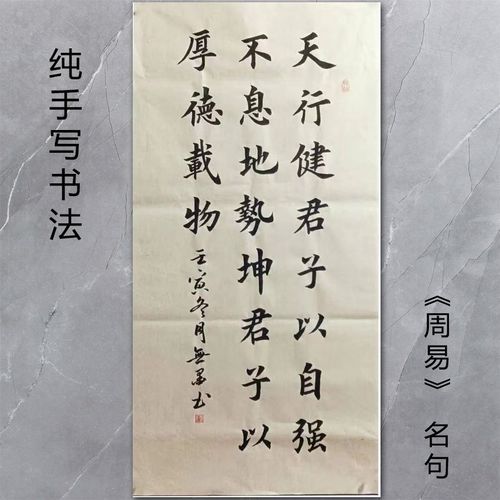 纯手写书法
天行健君子以自强
不息地势坤君子以
厚德載物
壬寅冬月無墨书
《周易》 名句